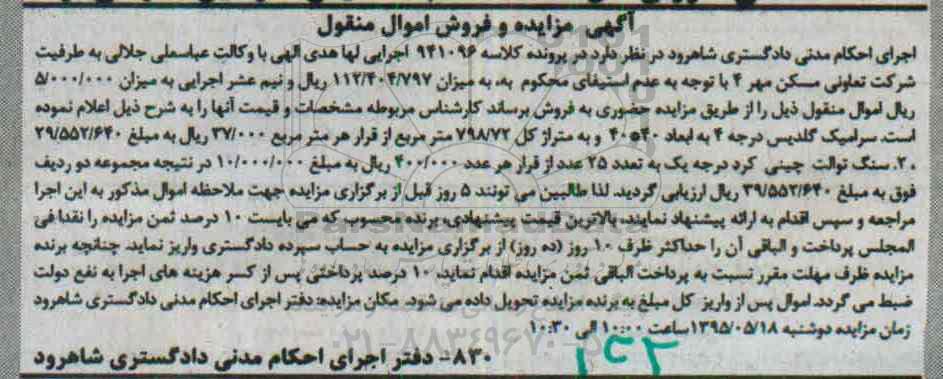 آگهی مزایده و فروش اموال منقول
اجرای احکام مدنی دادگستری شاهرود در نظر دارد در پرونده کلاسه ۹۴۱۰۹۶ اجرایی لها هدی الهی با وکالت عباسعلی جلالی به طرفیت
شرکت تعاونی مسکن مهر ۴ با توجه به عدم استیفای محکوم به به میزان ۱۱۲/۴۰۴/۷۹۷ ریال و نیم عشر اجرایی به میزان ۵/۰۰۰/۰۰۰
ریال اموال منقول ذیل را از طریق مزایده حضوری به فروش برساند کارشناس مربوطه مشخصات و قیمت آنها را به شرح ذیل اعلام نموده
است. سرامیک گلدیس درجه ۴ به ابعاد ۴۰*۴۰ و به متراژ کل ۷۹۸/۷۲ متر مربع از قرار هر متر مربع ۳۷/۰۰۰ ریال به مبلغ ۲۹/۵۵۲/۶۴۰
۲۰. سنگ توالت چینی کرد درجه یک به تعدد ۲۵ عدد از قرار هر عدد ۴۰۰/۰۰۰ ریال به مبلغ ۱۰/۰۰۰/۰۰۰ در نتیجه مجموعه دو ردیف
فوق به مبلغ ۳۹/۵۵۲/۶۴۰ ریال ارزیابی گردید. لذا طالبین می توانند ۵ روز قبل از برگزاری مزایده جهت ملاحظه اموال مذکور به این اجرا
مراجعه و سپس اقدام به ارائه پیشنهاد نمایند، بالاترین قیمت پیشنهادی، برنده محسوب که می بایست ۱۰ درصد ثمن مزایده را نقدا فی
المجلس پرداخت و الباقی آن را حداکثر ظرف ۱۰ روز (ده روز) از برگزاری مزایده به حساب سپرده دادگستری واریز نماید. چنانچه برنده
مزایده ظرف مهلت مقرر نسبت به پرداخت الباقی ثمن مزایده اقدام نماید، ۱۰ درصد پرداختی پس از کسر هزینه های اجرا به نفع دولت
ضبط می گردد. اموال پس از واریز کل مبلغ به برنده مزایده تحویل داده می شود. مکان مزایده: دفتر اجرای احکام مدنی دادگستری شاهرود
زمان مزایده دوشنبه ۱۳۹۵/۰۵/۱۸ ساعت ۱۰:۰۰ الی ۱۰:۳۰
۸۳۰- دفتر اجرای احکام مدنی دادگستری شاهرود
ParsNamadData
۰۲۱-۸۸۳۴۹۶۷۰-۵